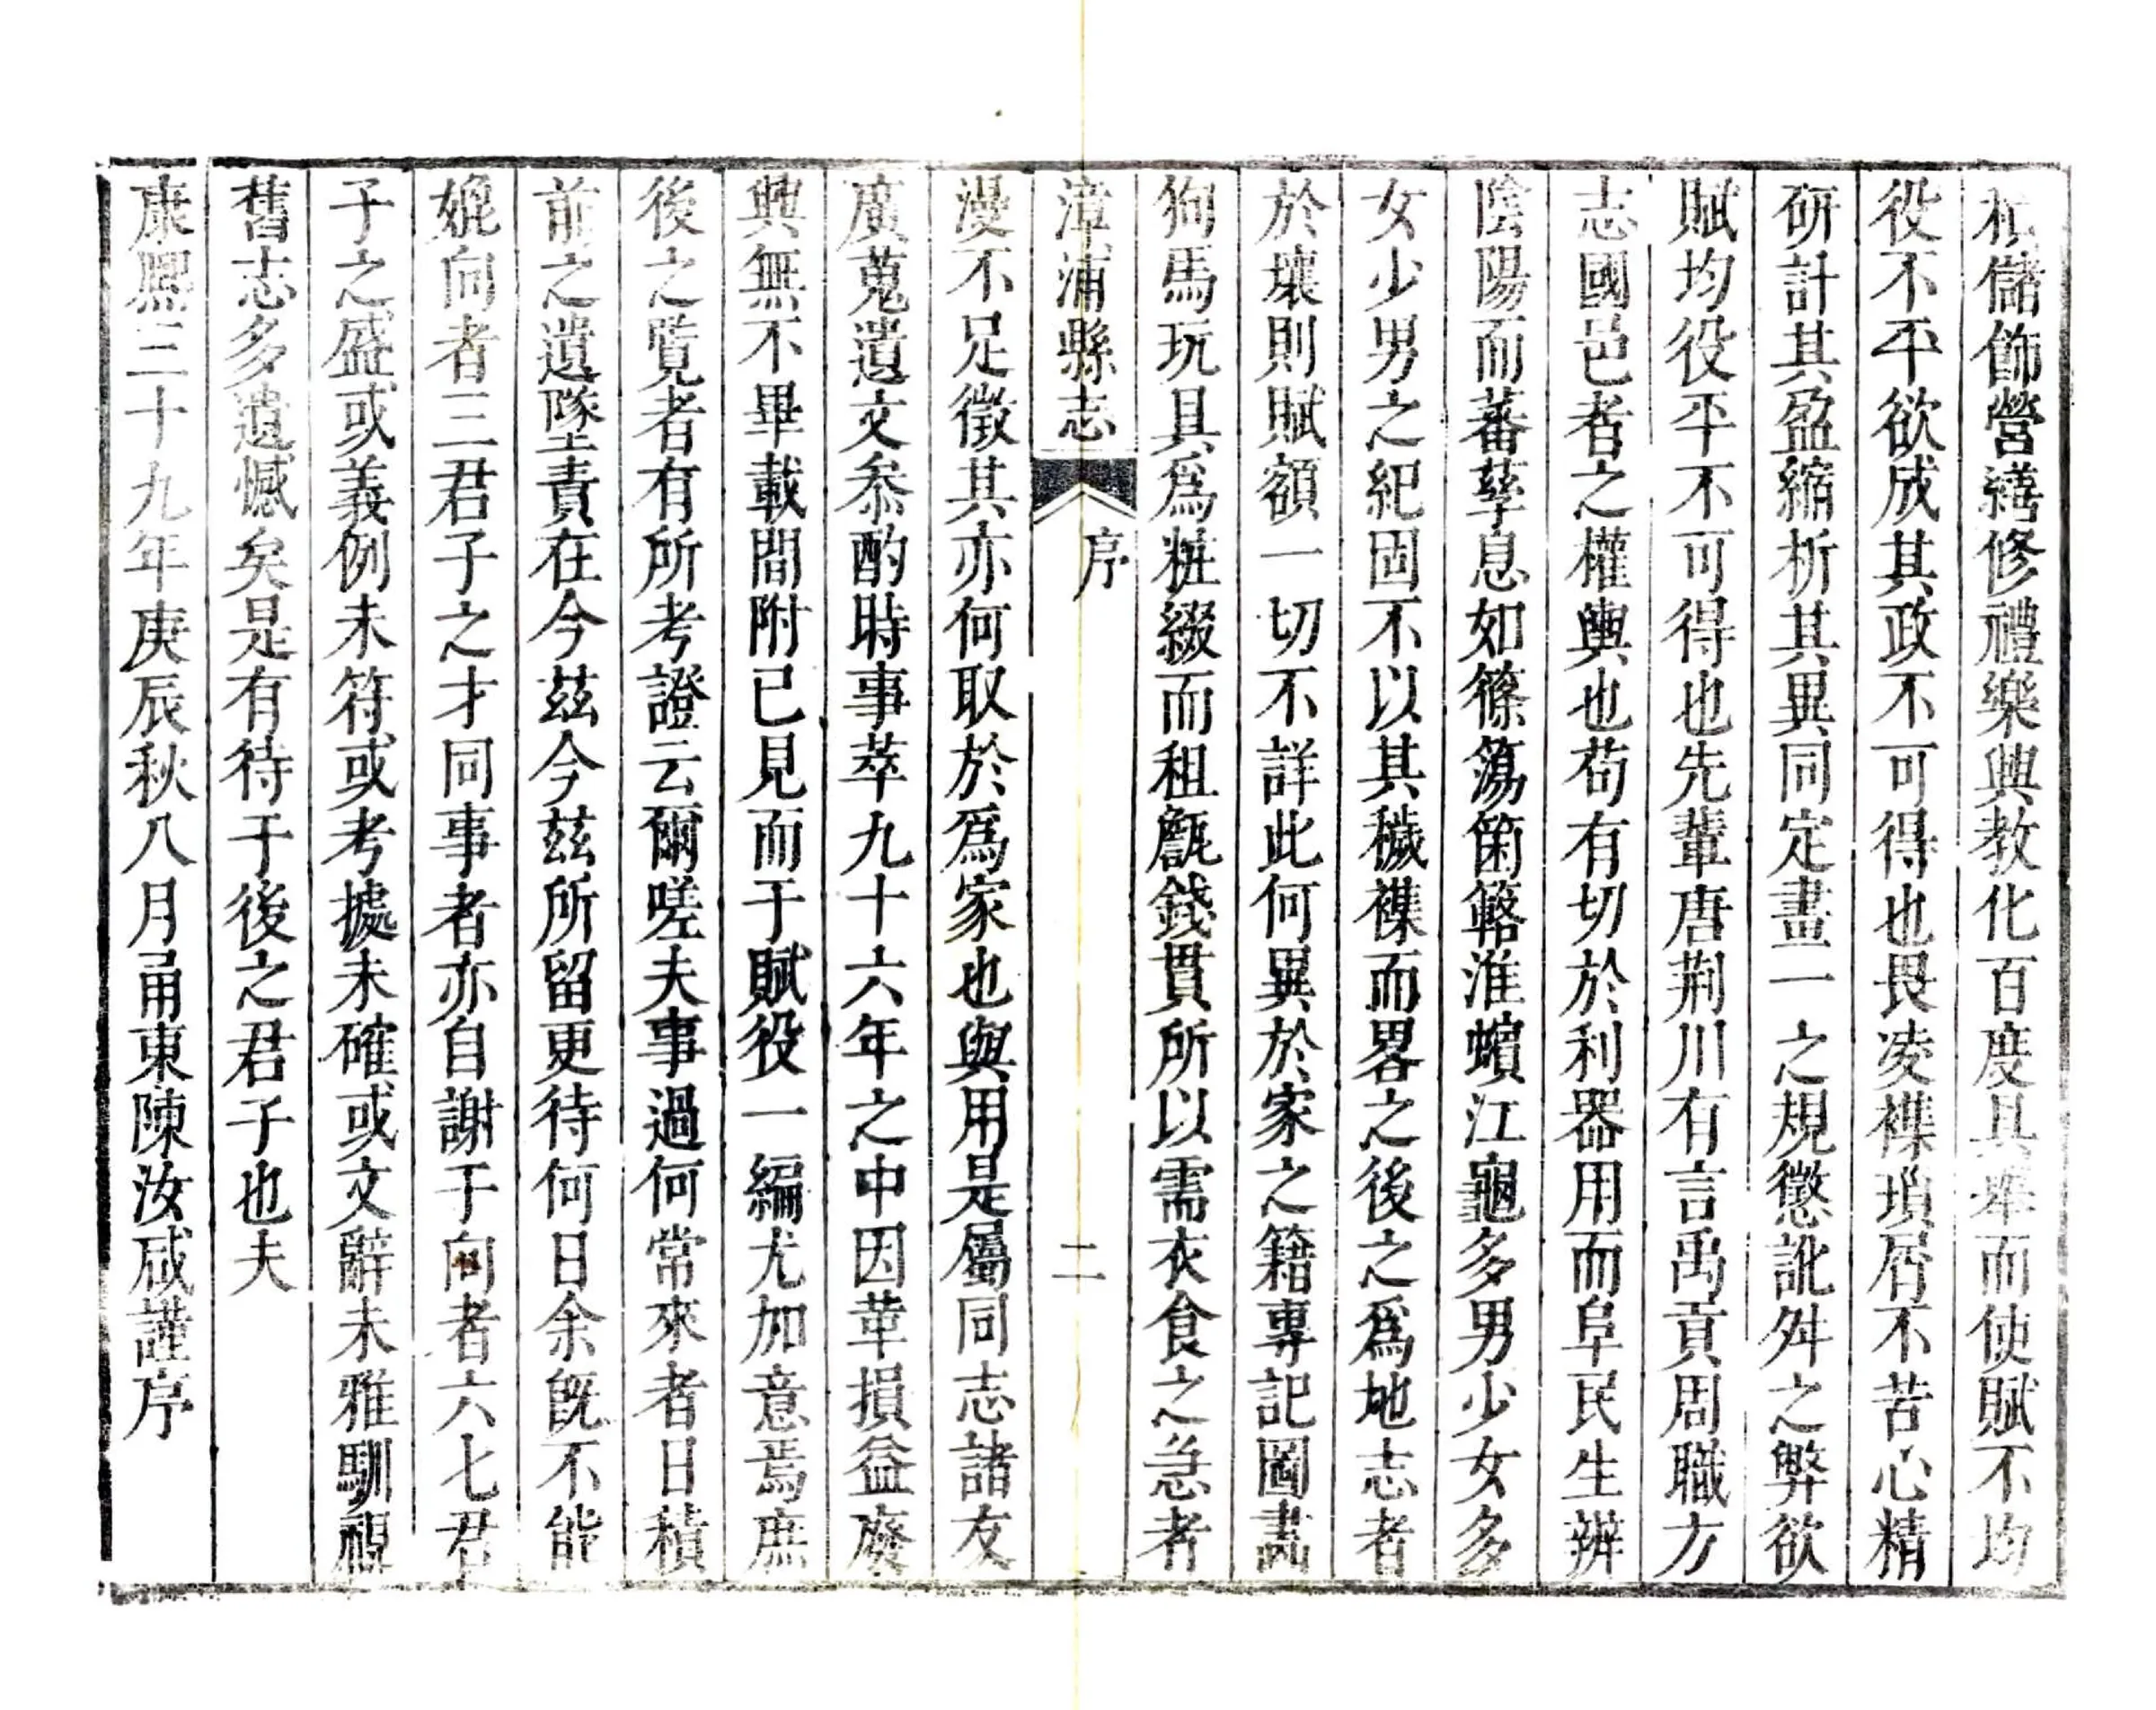 儲飾營繕修禮樂興教化百度具舉而使賦不均
役不平欲成其政不可得也畏凌襍瑣屑不苦心精
研計其盈縮析其異同定畫一之規懲訛舛之弊欲
賦均役平不可得也先輩唐荆川有言禹貢周職方
志國邑者之權輿也苟有切於利器用而阜民生辨
陰陽而蕃孳息如篠簜箘簵淮蠙江龜多男少女多
女少男之紀固不以其穢襍而畧之後之爲地志者
於壤則賦額一切不詳此何異於家之籍專記圖畫
狗馬玩具爲粧綴而租甔錢貫所以需衣食之急者
漳浦縣志 序 二
漫不足徵其亦何取於爲家也與用是屬同志諸友
廣蒐遺文叅酌時事萃九十六年之中因革損益廢
興無不畢載間附已見而于賦役一編尤加意焉庶
後之覽者有所考證云爾嗟夫事過何常來者日積
前之遺墜責在今茲今茲所留更待何日余旣不能
媲向者三君子之才同事者亦自謝于向者六七君
子之盛或義例未符或考據未確或文辭未雅馴視
舊志多遺憾矣是有待于後之君子也夫
康熙三十九年庚辰秋八月甬東陳汝咸謹序